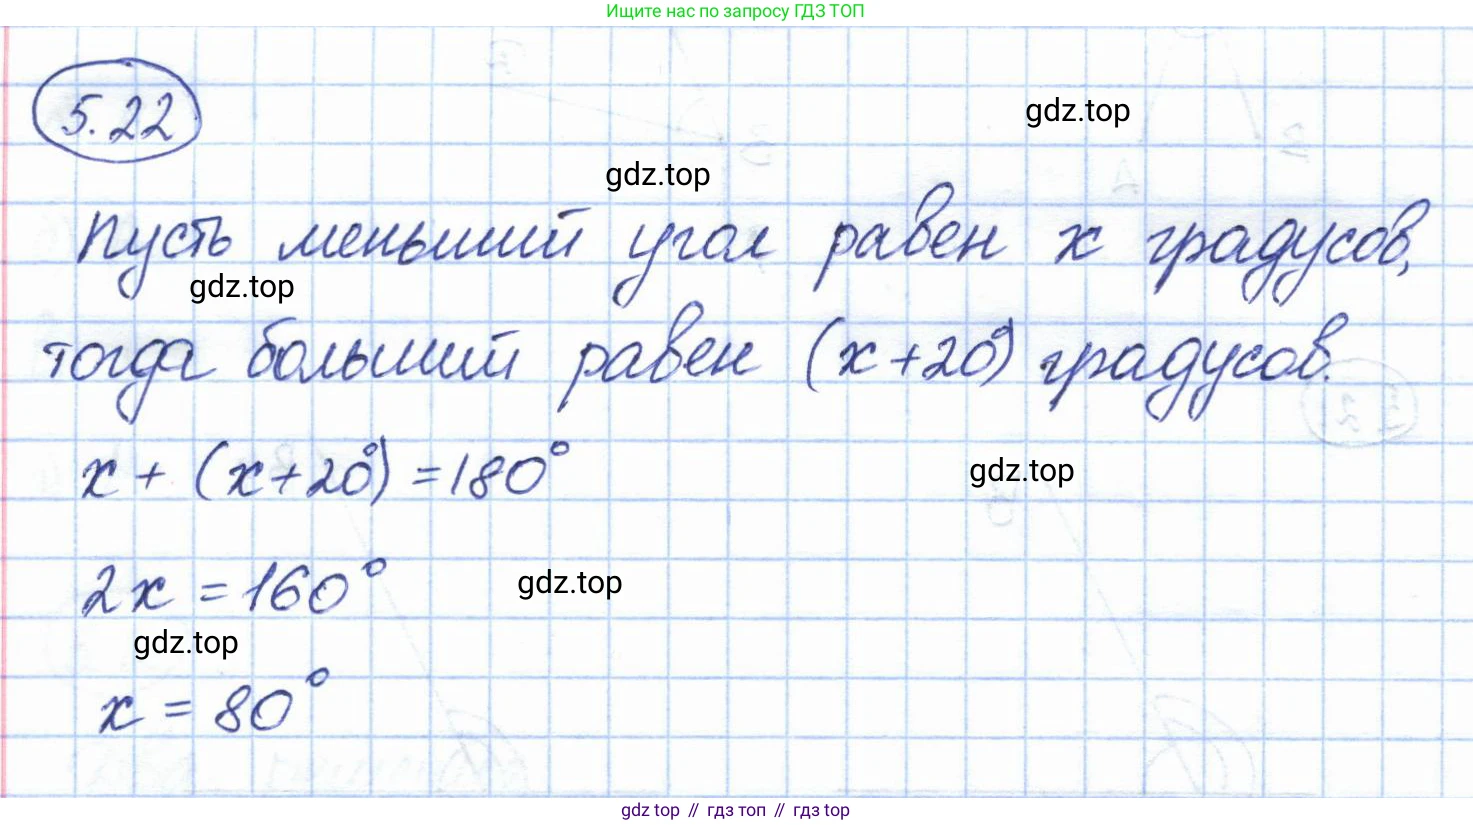 Ищите нас по запросу ГДЗ ТОП
5.22
gdz.top
gdz.top
Пусть меньший угол равен x градусов,
gdz.top
тогда больший равен (x+20°) градусов.
x + (x+20°) = 180°
gdz.top
2x = 160°
gdz.top
gdz.top
x = 80°
gdz top // гдз топ // гдз top